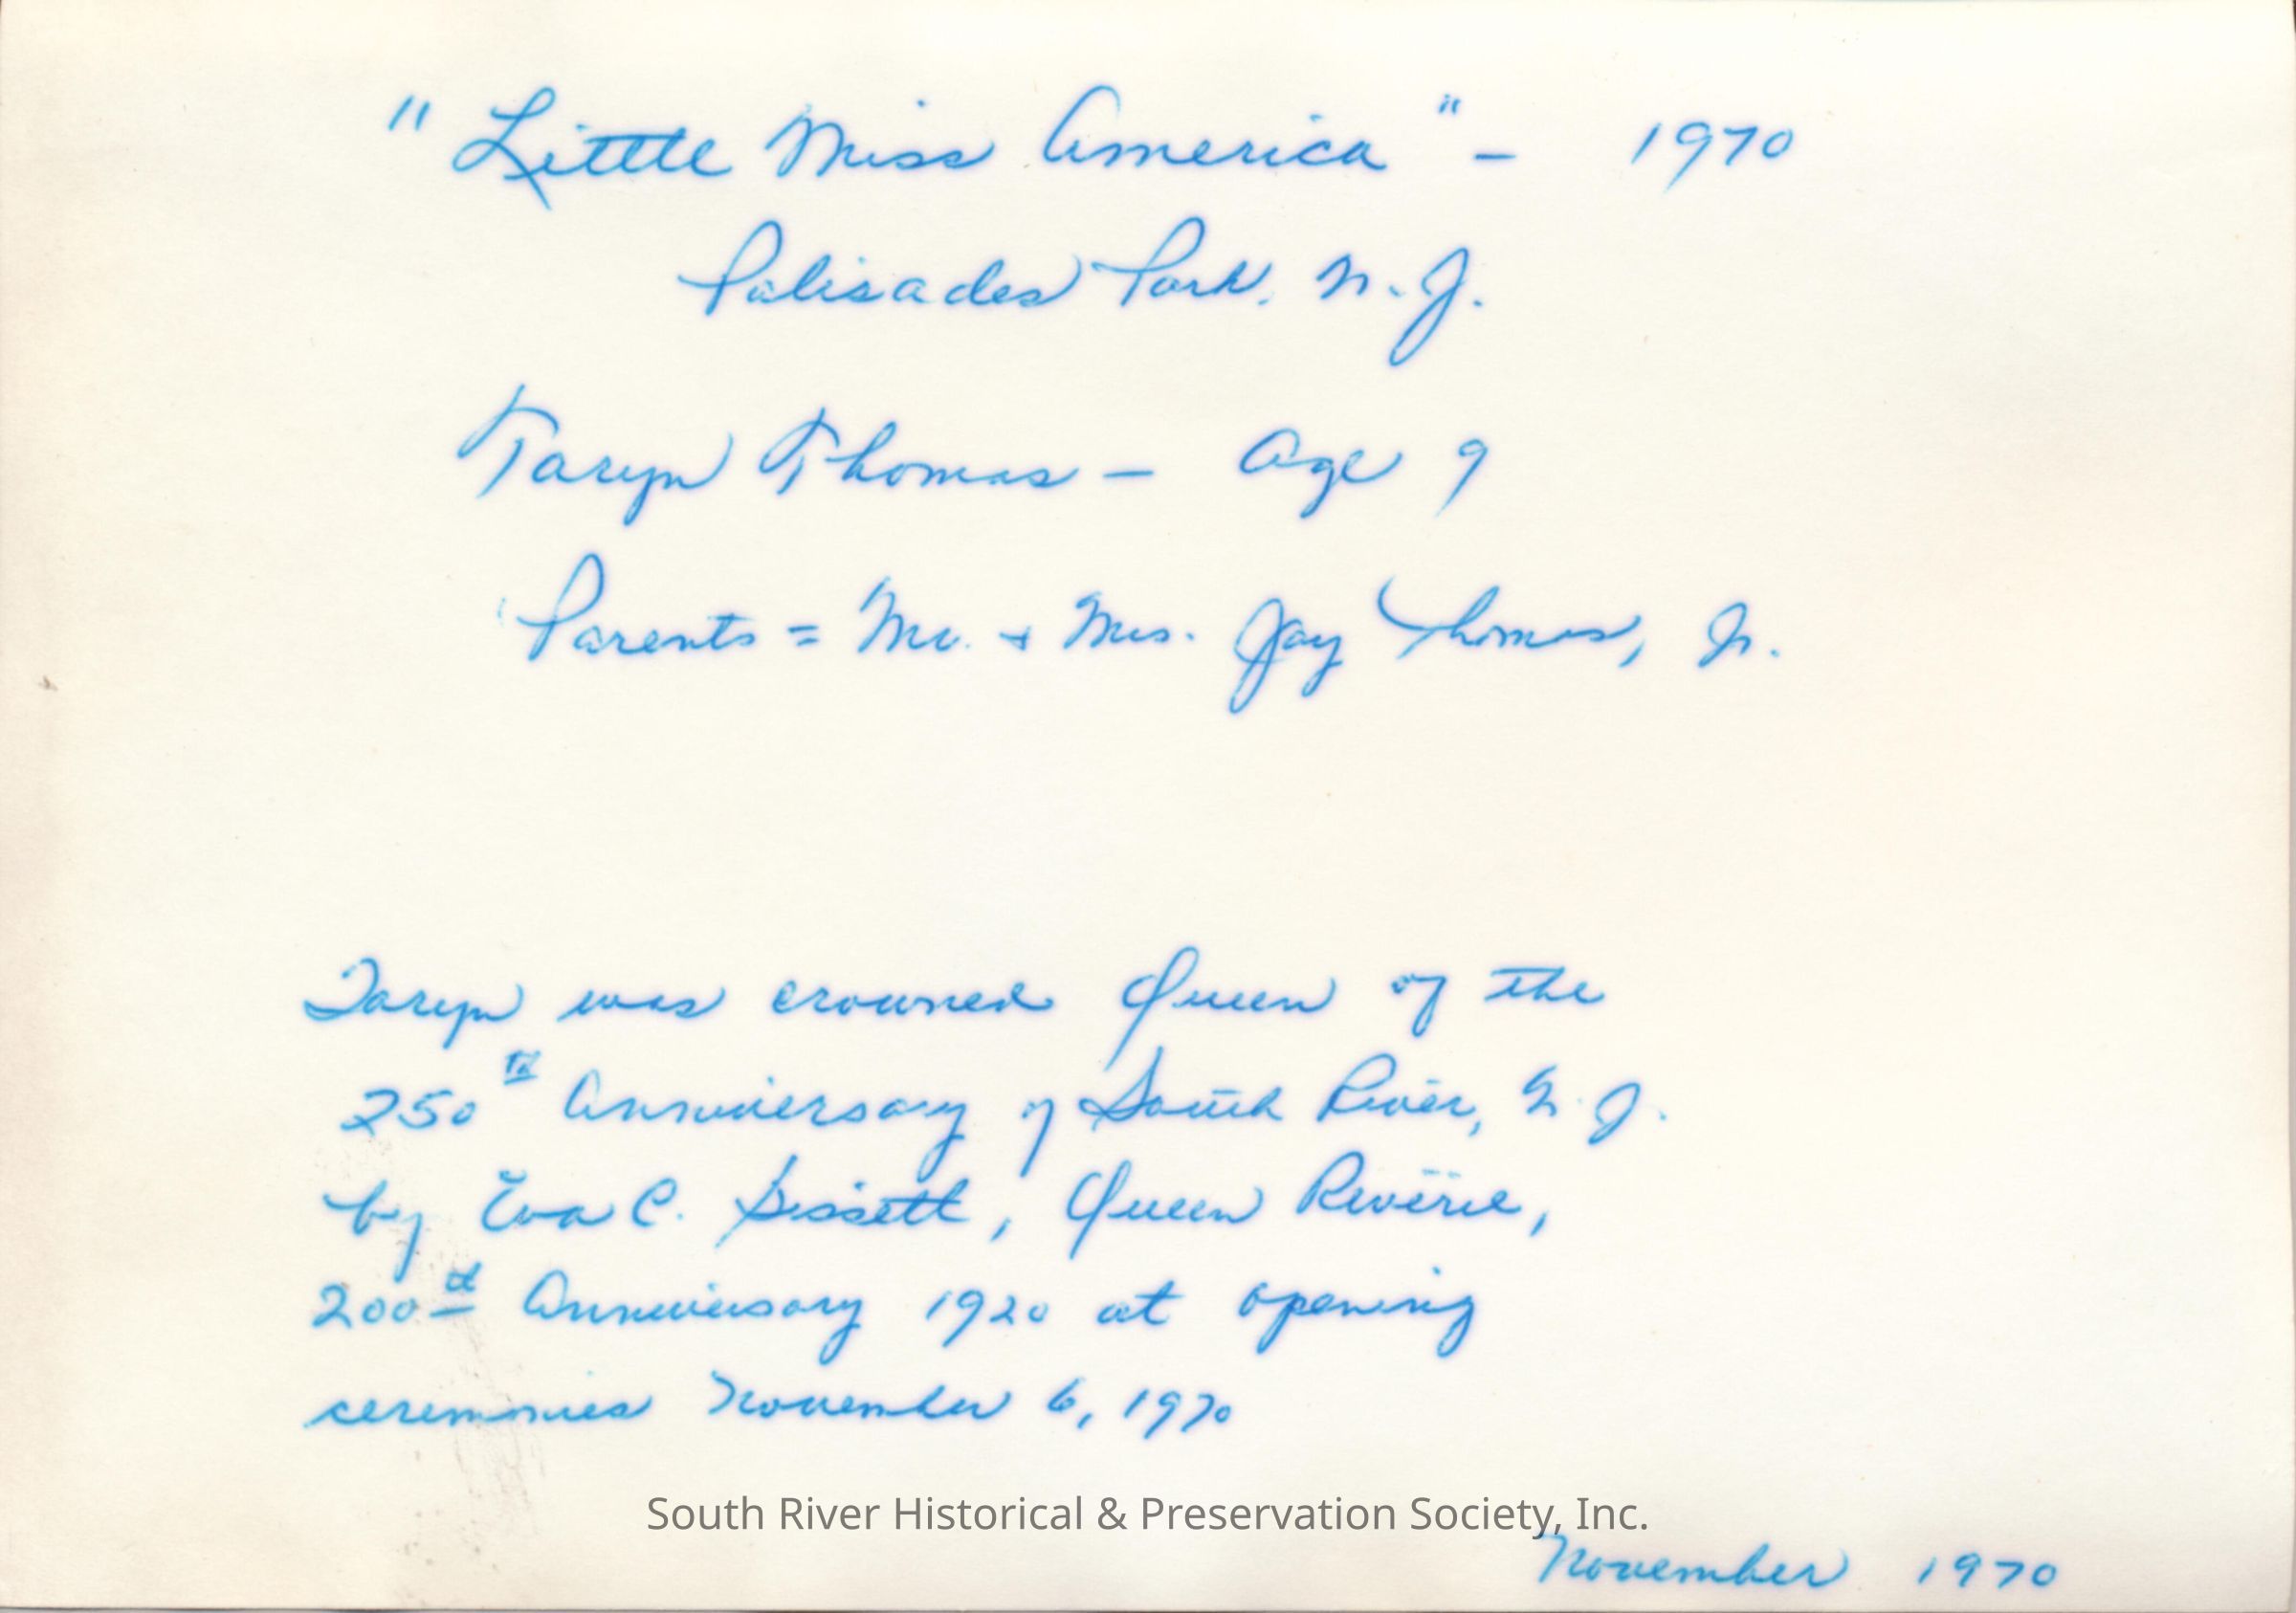 "Little Miss America" - 1970
Palisades Park, N.J.
Taryn Thomas - Age 9
Parents = Mr. + Mrs. Jay Thomas, Jr.
Taryn was crowned Queen of the
250th Anniversary of South River, N.J.
by Eva C. Bissett, Queen Reverie,
200th Anniversary 1920 at opening
ceremonies November 6, 1970
South River Historical & Preservation Society, Inc.
November 1970